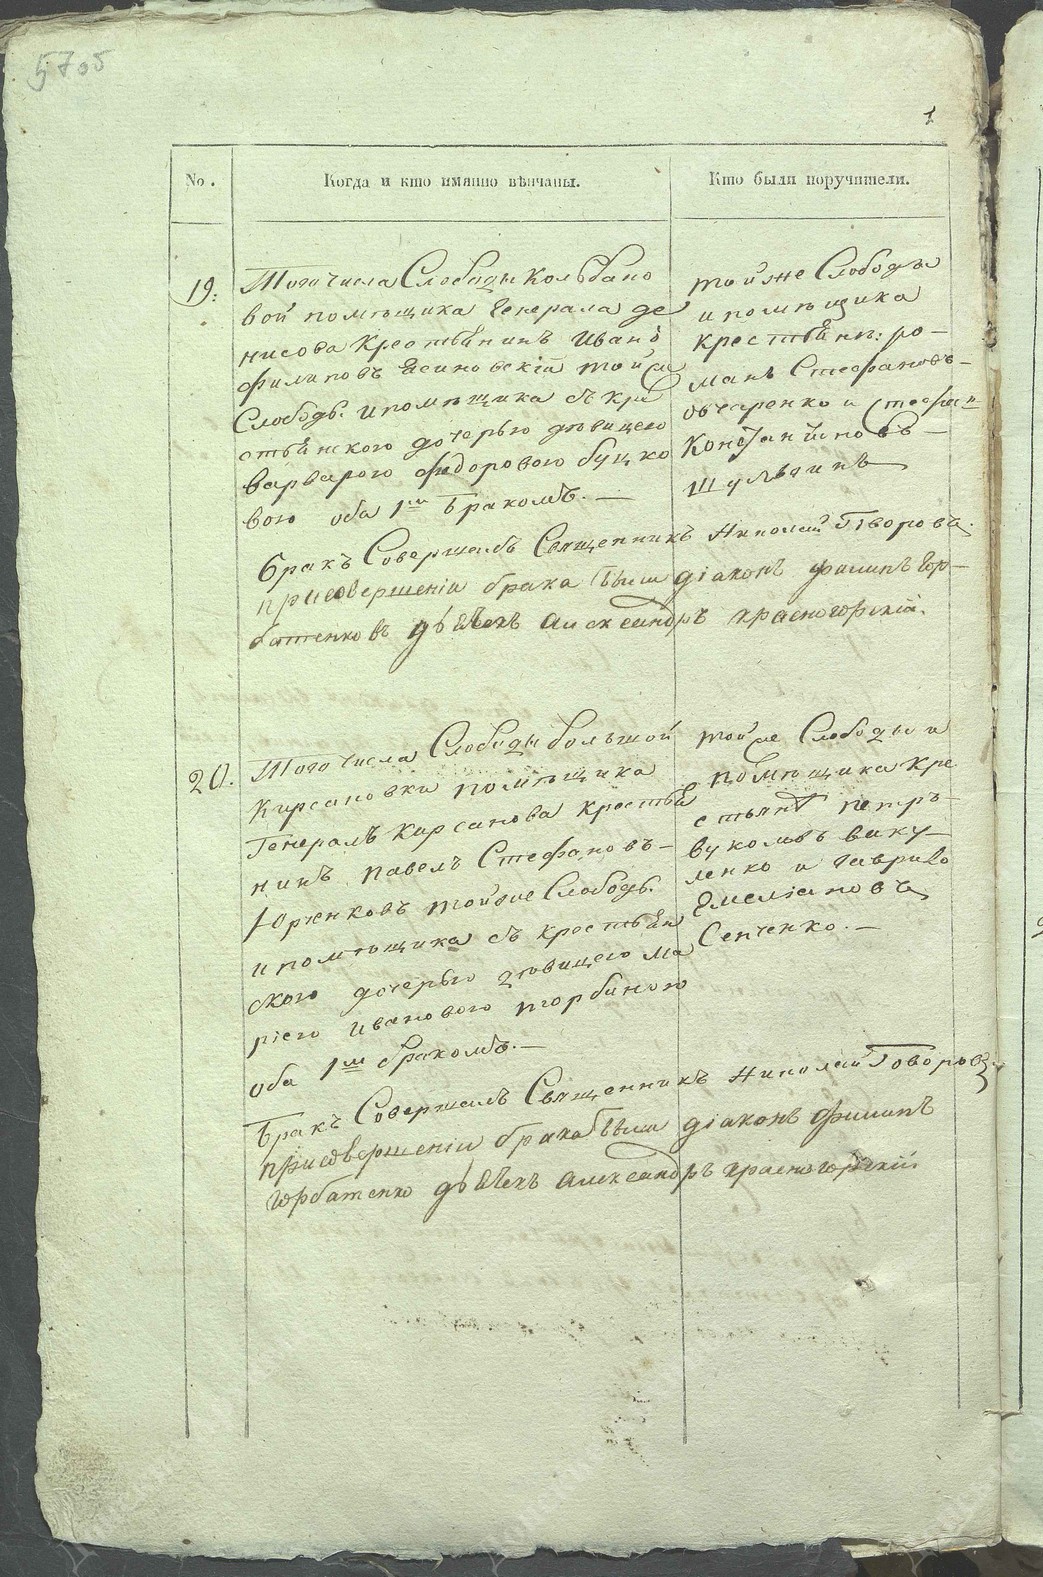 5705
1
No. Когда и кто имянно вѣнчаны. Кто были поручители.
19. Того числа Слободы Колѣбано
вой помѣщика Генерала де
нисова Крестьянинъ Иванъ
Филиповъ Ясиновскій тойже
Слободы и помѣщика съ кре
стьянскою дочерью девицею
варварою Федоровою буцко
вою оба 1м бракомъ. —
тойже Слободы
и помѣщика
крестьяне: ро-
манъ Стефановъ-
овчаренко и стефан
Константиновъ —
Шульгинъ
бракъ Совершалъ Священникъ Николай Говоровъ.
при совершеніи брака были діаконъ филипъ Гор-
батенковъ дьячекъ Александръ красногорскій.
20. Того числа Слободы большой
Кирсановки помѣщика
Генералъ Кирсанова крестья
нинъ Павелъ Стефановъ-
Юренковъ тойже Слободы
и помѣщика съ крестьян
скою дочерью девицею Ма
ріею Ивановою торбиною
оба 1м бракомъ. —
тойже Слободы и
помѣщика кре
стьянѣ петръ-
вуколовъ вику-
ленко и гаврило
Емеліановъ
Сенченко. —
Бракъ Совершалъ Священникъ Николай Говоровъ.
при совершеніи брака были діаконъ филипъ
горбатенко дьячекъ Александръ красногорскій